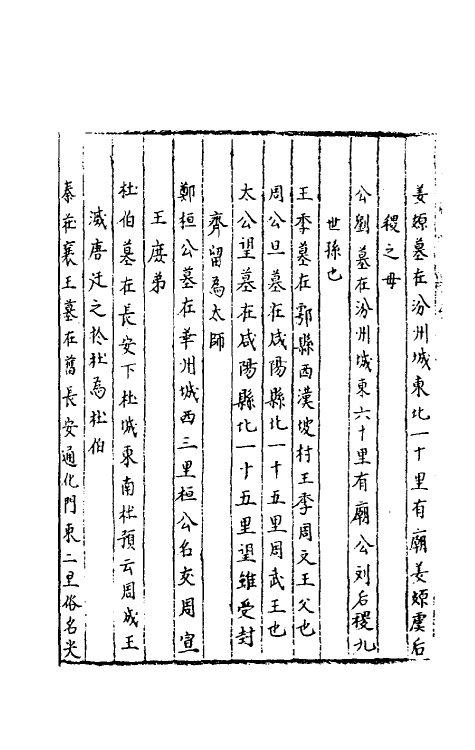 姜嫄墓在汾州城東北一十里有廟姜嫄虞后
稷之母
公劉墓在汾州城東六十里有廟公刘后稷九
世孫也
王季墓在鄠縣西漢坡村王季周文王父也
周公旦墓在咸陽縣北一十五里周武王也
太公望墓在咸陽縣北一十五里望雖受封
齊留為太師
鄭桓公墓在華州城西三里桓公名友周宣
王庶弟
杜伯墓在長安下杜城東南杜預云周成王
滅唐迁之於杜為杜伯
秦莊襄王墓在舊長安通化門東二里俗名尖